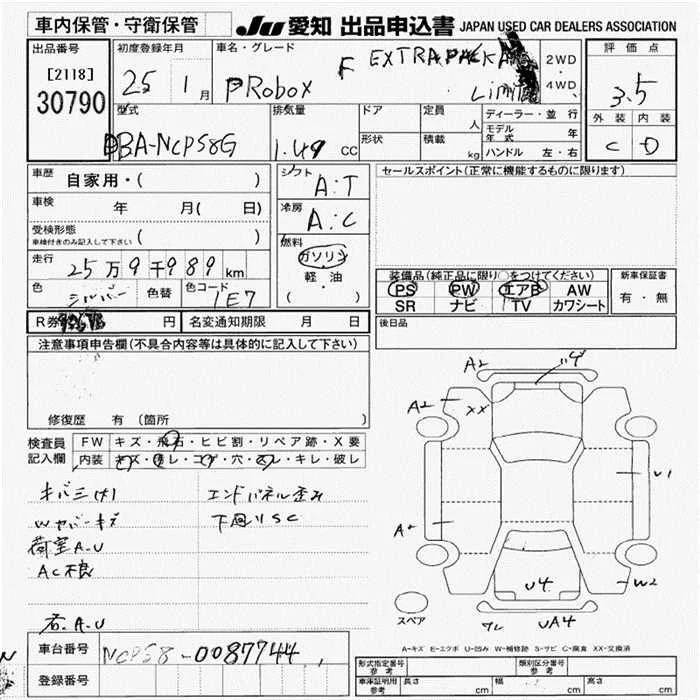 車内保管・守衛保管
JU 愛知 出品申込書 JAPAN USED CAR DEALERS ASSOCIATION
出品番号
[2118]
30790
初度登録年月
25 1月
車名・グレード
PRobox F EXTRA PACKAGE
Limited
2WD
・
4WD
評価点
3.5
外装 内装
C D
型式
DBA-NCP58G
排気量
1.49 CC
ドア
形状
定員
人
積載
kg
ディーラー・並行
モデル年式 年
ハンドル 左・右
車歴
自家用・( )
車検
年 月( 日)
受検形態
車検付きのみ記入して下さい ( )
走行
25万9千989km
色
シルバー
色替
色コード
1E7
シフト
A:T
冷房
A:C
燃料
ガソリン
軽・油
・
( )
セールスポイント(正常に機能するものに限ります)
装備品(純正品に限り○をつけてください)
PS PW エアB AW
SR ナビ TV カワシート
新車保証書
有・無
R券 円
名変通知期限 月 日
後日品
注意事項申告欄(不具合内容等は具体的に記入して下さい)
修復歴 有 〔箇所 〕
検査員
記入欄
FW キズ・飛石・ヒビ割・リペア跡・X要
内装 キズ・汚レ・コゲ・穴・スレ・キレ・破レ
キバミ(大) エンドパネル歪み
Wカバーキズ 下回りSC
荷室A.U
AC不良
右A.U
A2
U4
A2
XX
U1
A2
W2
U4
スペア
ワレ UA4
A-キズ E-エクボ U-凹み W-補修跡 S-サビ C-腐食 XX-交換済
車台番号
NCP58-0087744
登録番号
型式指定番号
参考
類別区分番号
参考
車庫証明用
参考
長さ cm
幅 cm
高さ cm